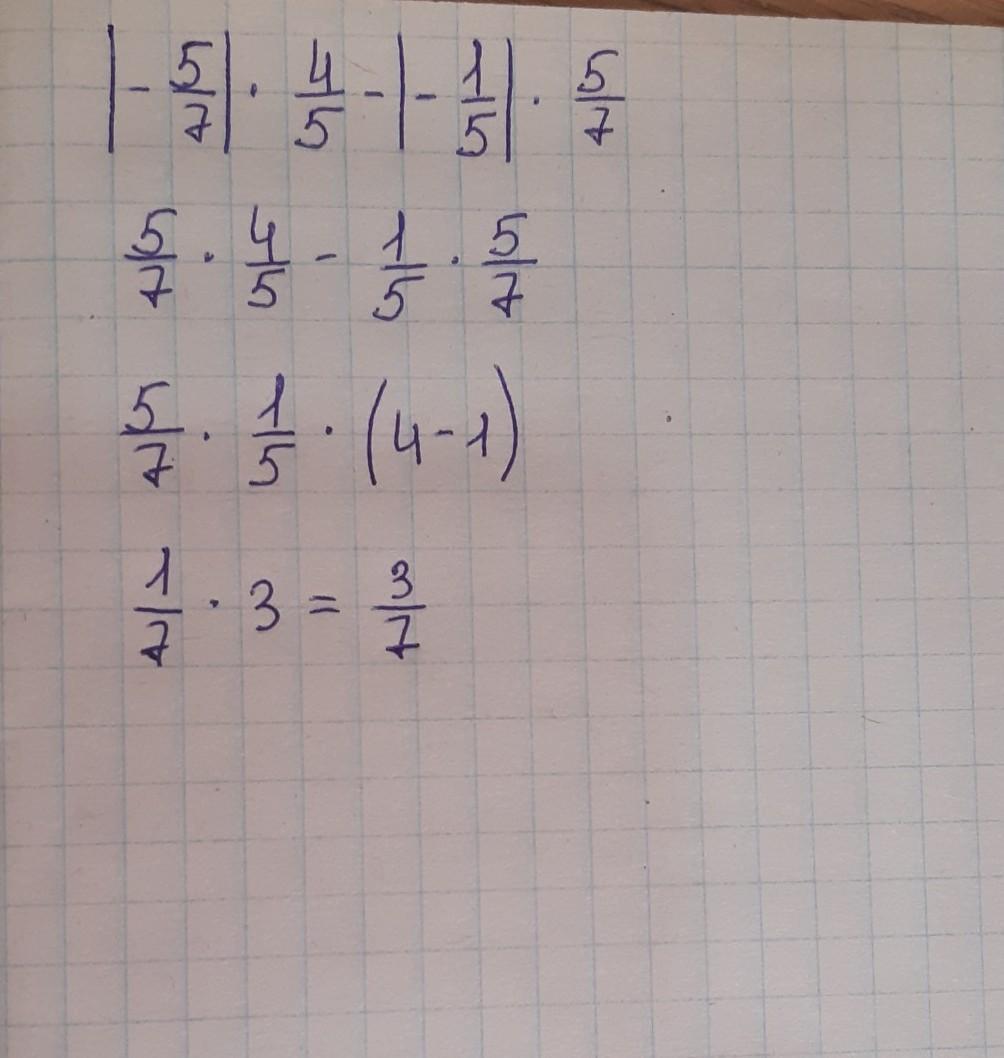 |-5/7| · 4/5 - |-1/5| · 5/7
5/7 · 4/5 - 1/5 · 5/7
5/7 · 1/5 · (4-1)
1/7 · 3 = 3/7